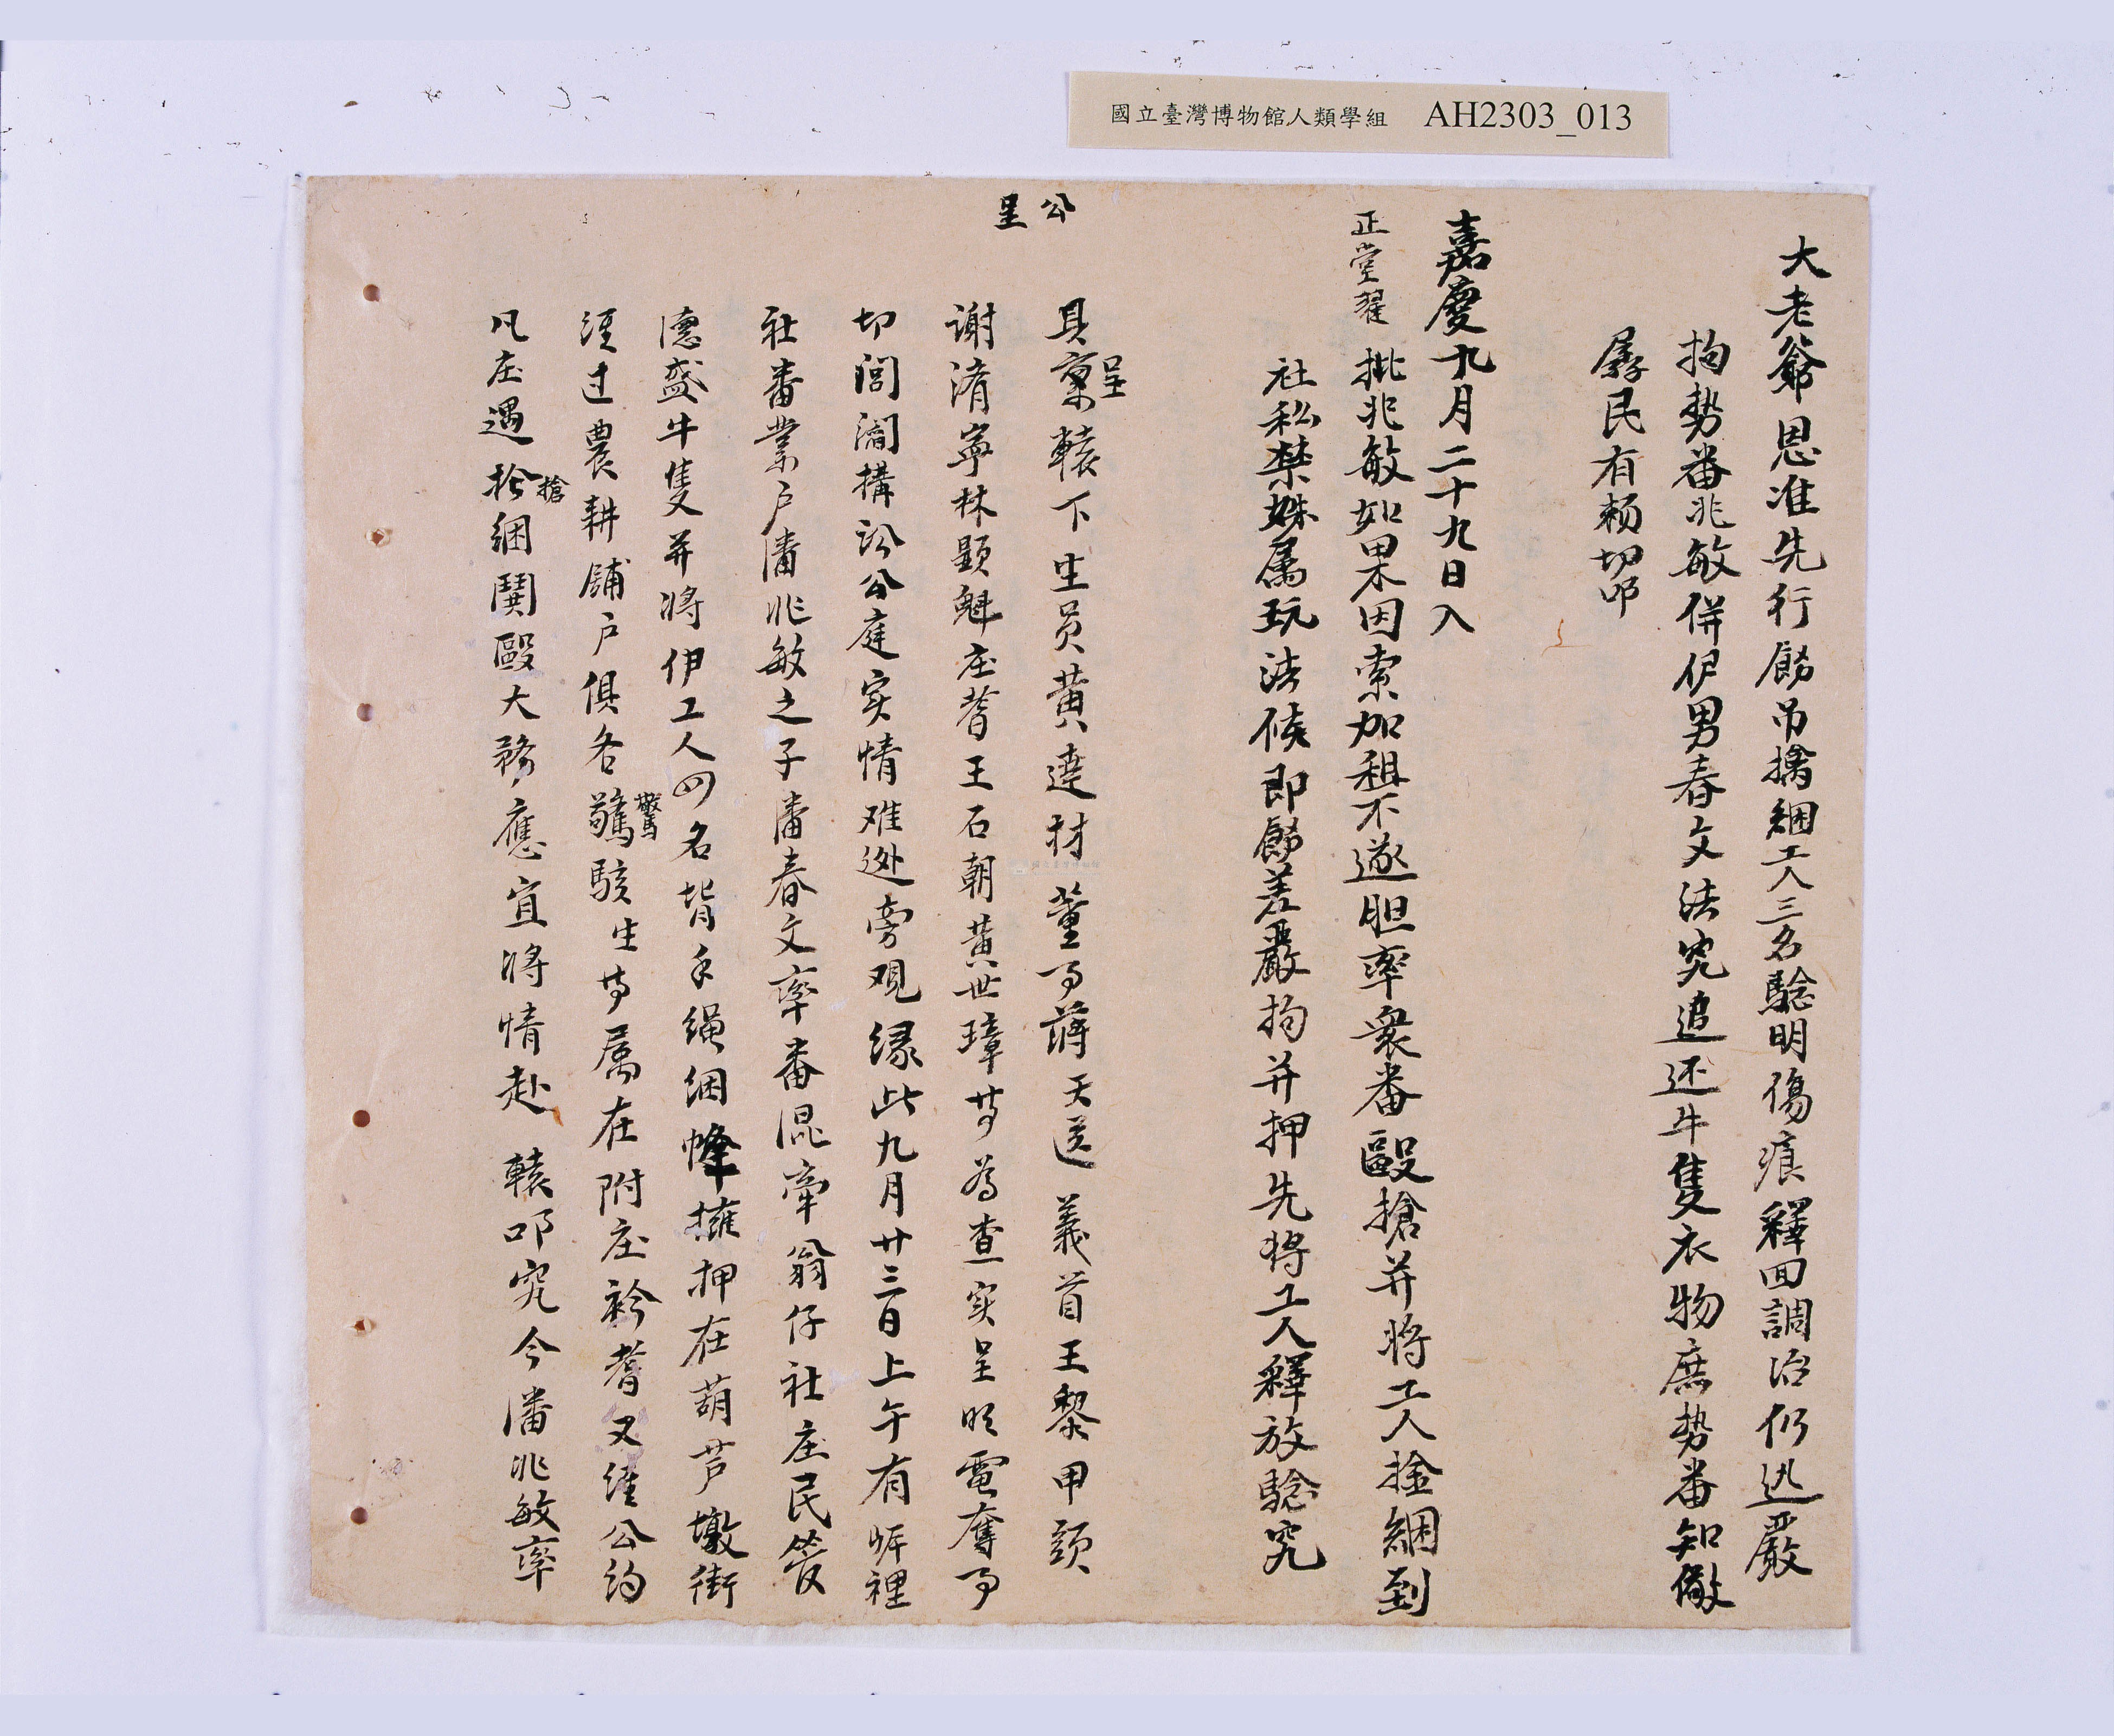 國立臺灣博物館人類學組 AH2303_013
大老爺恩准先行飭吊擒綑工人三名驗明傷痕釋回調治仍迅嚴
拘勢番兆敏併伊男春文法究追还牛隻衣物庶势番知儆
孱民有賴切叩
嘉慶九月二十九日入
正堂翟 批兆敏如果因索加租不遂胆率衆番毆搶并将工人捡綑到
社私禁姝属玩法候即飭差嚴拘并押先将工人釋放驗究
公呈
具稟呈轅下生員黃達材董事蔣天送義首王黎甲頭
謝淯寧林顕魁庄耆王石朝黃世璋等為查实呈明電奪事
切閭閻搆訟公庭实情难逊旁观緣此九月廿三日上午有岸裡
社番業户潘兆敏之子潘春文率番混牽翁仔社庄民簽
德盛牛隻并將伊工人四名背手绳綑蜂擁押在葫芦墩街
迳过農耕舖户俱各驚驚駭生等属在附庄衿耆又經公約
凡庄遇抢搶綑鬪毆大務應宜將情赴 轅叩究今潘兆敏率